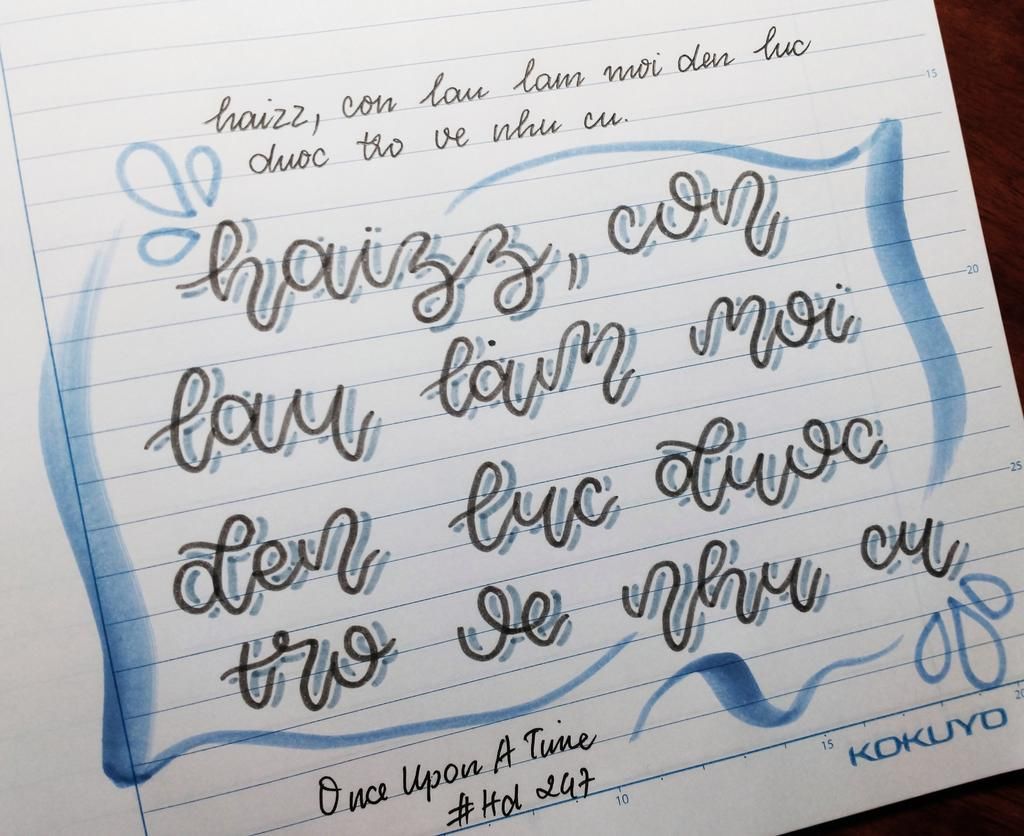 haizz, con lau lam moi den luc
duoc tro ve nhu cu.
haizz, con
lau lam moi
den luc duoc
tro ve nhu cu
Once Upon A Time
#Hd 247
KOKUYO
10
15
20
15
20
25